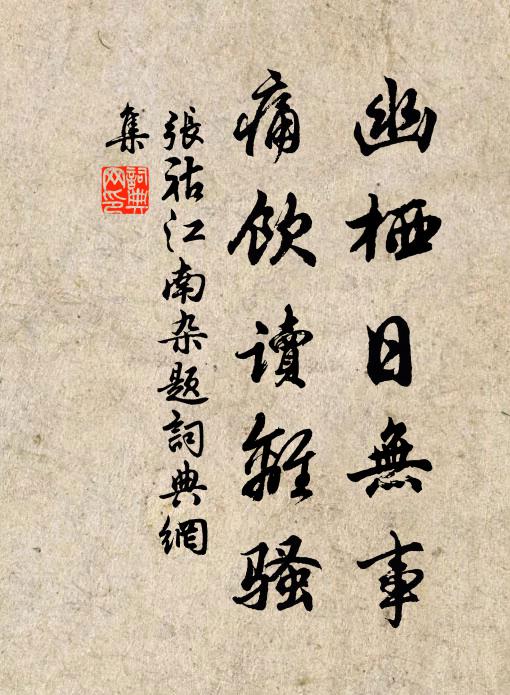 幽栖日無事
痛飲讀離騷
張祜江南杂題詞典網
集
詞典
网印